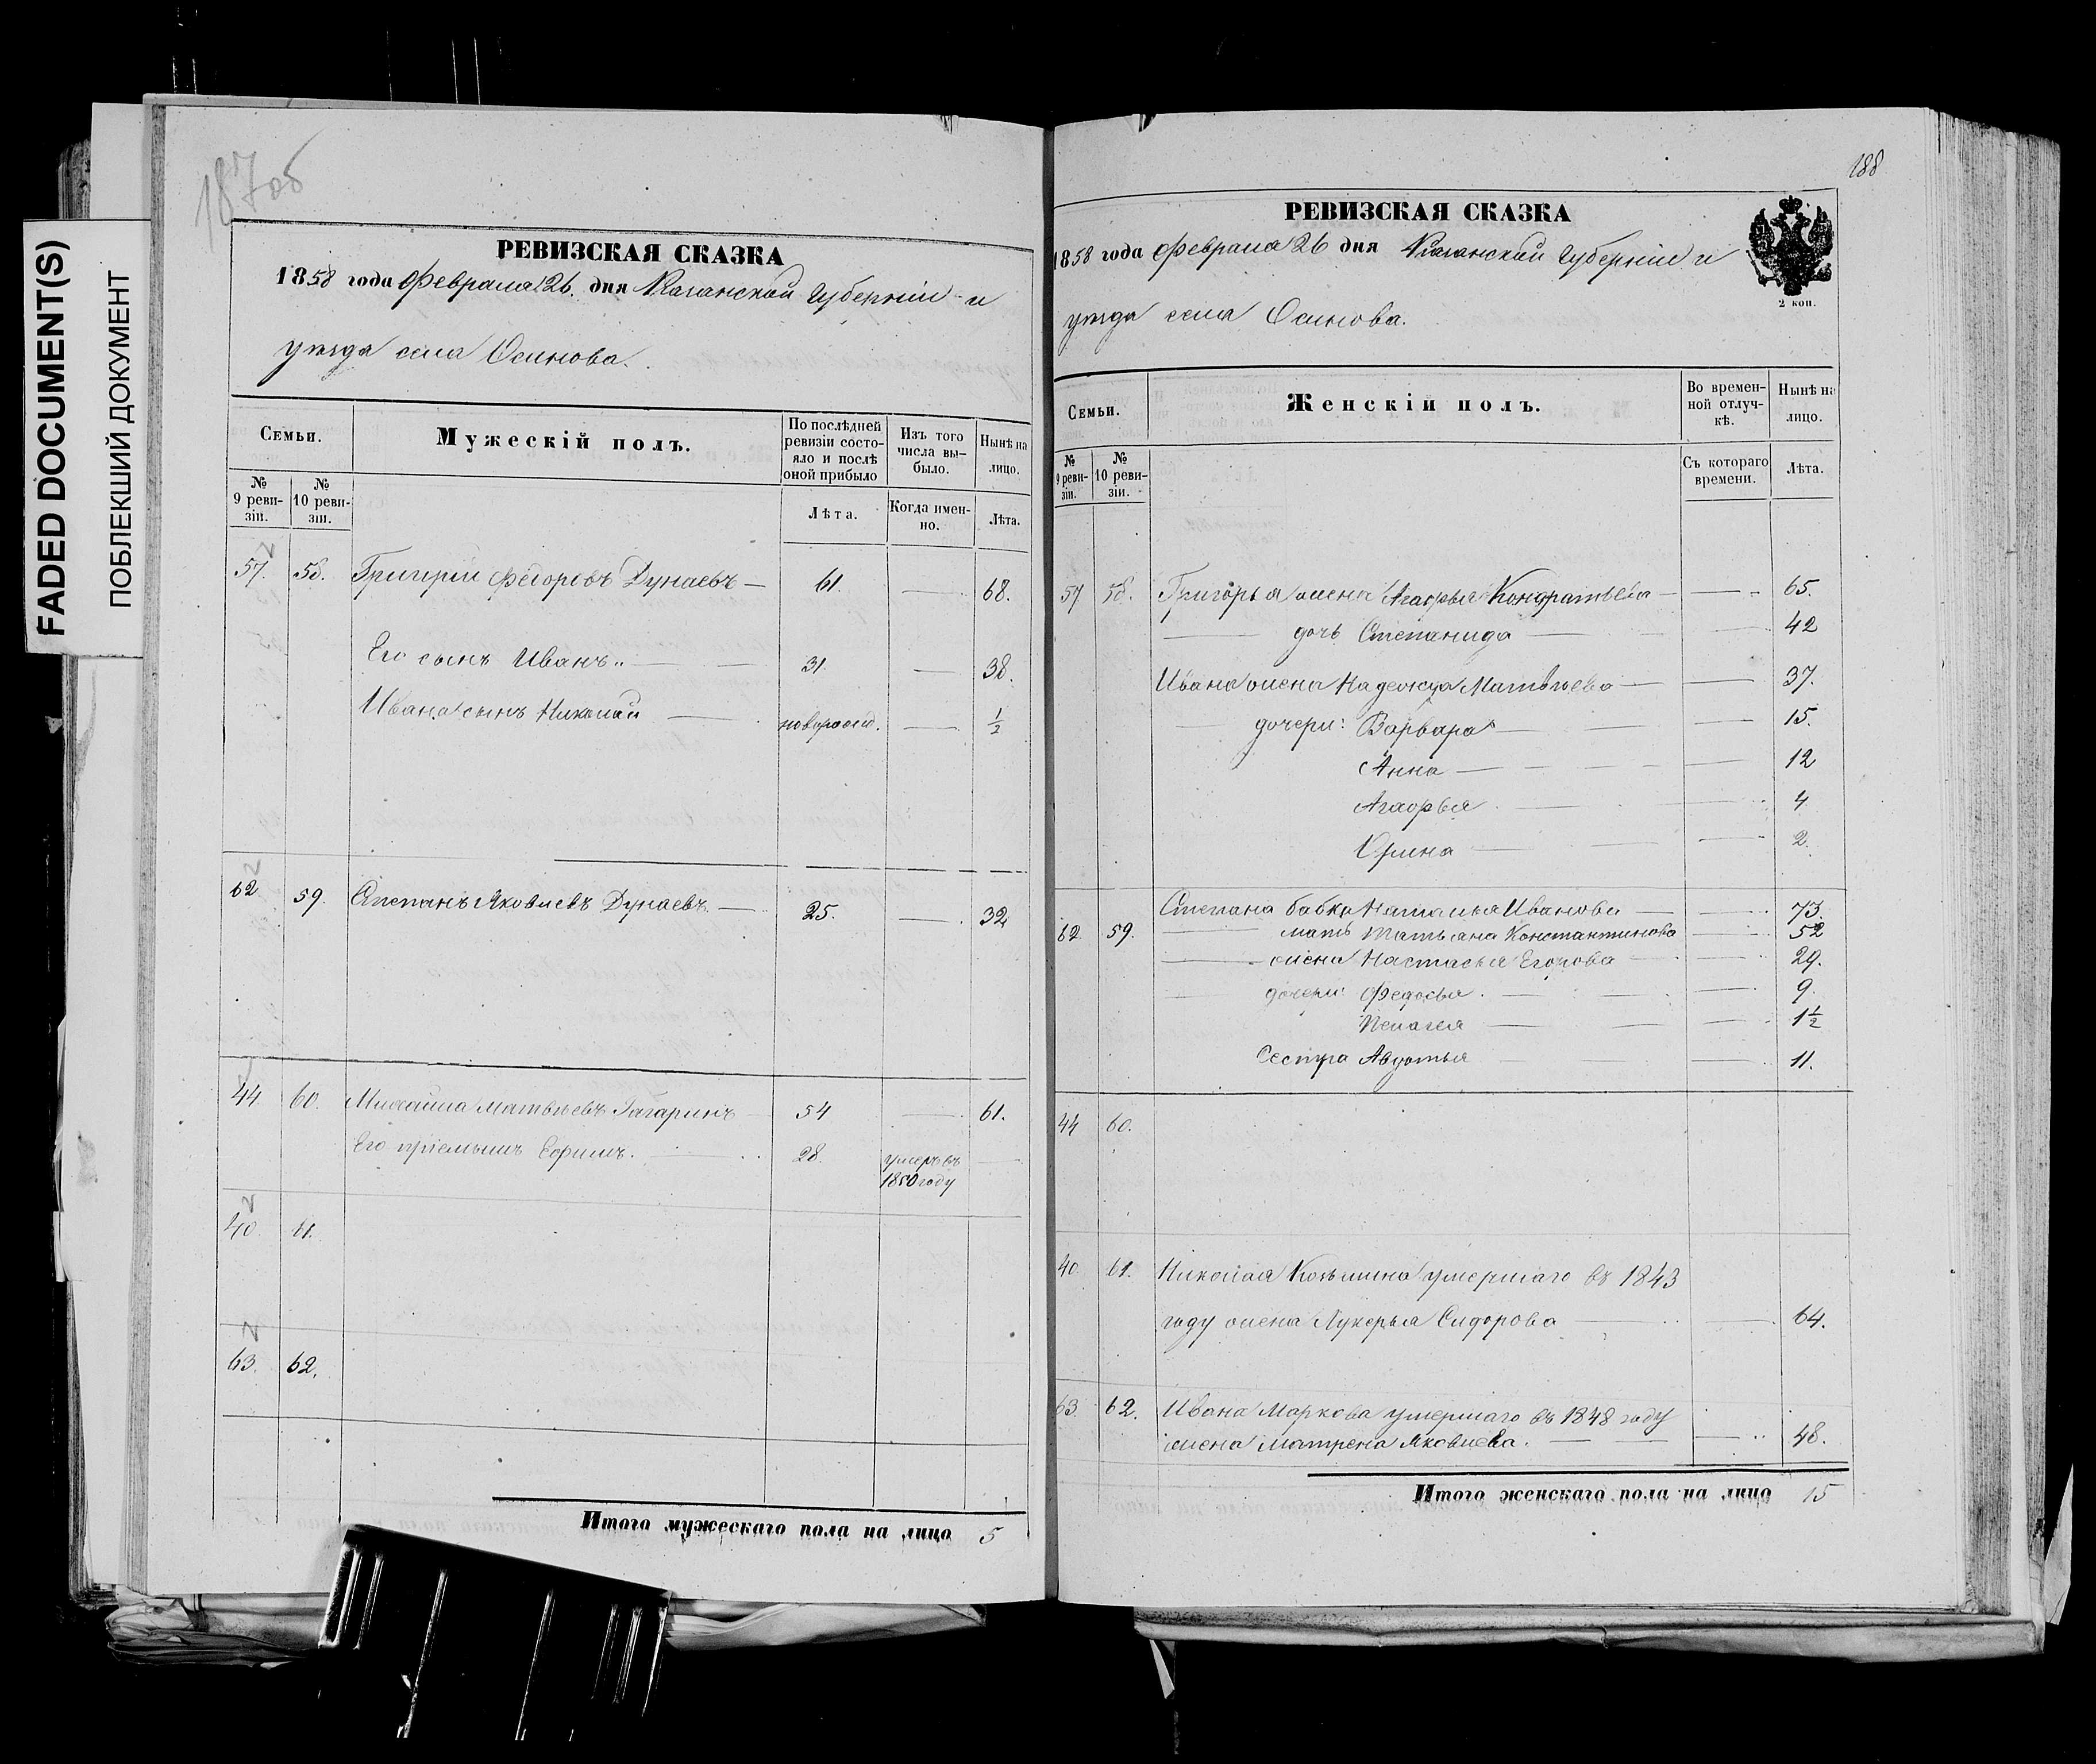 FADED DOCUMENT(S)
ПОБЛЕКШИЙ ДОКУМЕНТ
187об
РЕВИЗСКАЯ СКАЗКА
1858 года Февраля 26. дня Казанской Губерніи и
уѣзда села Осинова.
Семьи.
Мужескій полъ.
По послѣдней ревизіи состояло и послѣ оной прибыло
Изъ того числа выбыло.
Нынѣ на лицо.
№ 9 ревизіи.
№ 10 ревизіи.
Лѣта.
Когда именно.
Лѣта.
57. 58. Григорій Федоровъ Дунаевъ — 61. — 68.
Его сынъ Иванъ.. — 31. — 38.
Ивана сынъ Николай — новорожд. — 1/2
62 59. Степанъ Яковлевъ Дунаевъ. — 25. — 32
44 60. Михайла Матвѣевъ Гагаринъ 54 — 61.
Его пріемышъ Ефимъ. — 28. умеръ въ —
1850 году
40. 61.
63. 62.
Итого мужескаго пола на лицо 5
188
РЕВИЗСКАЯ СКАЗКА
1858 года Февраля 26 дня Казанской Губерніи и
уѣзда села Осинова.
2 коп.
Семьи.
Женскій полъ.
Во временной отлучкѣ.
Нынѣ на лицо.
№ 9 ревизіи.
№ 10 ревизіи.
Съ котораго времени.
Лѣта.
57 58. Григорья жена Агафья Кондратьева — — 65.
— дочь Степанида — — 42
Ивана жена Надежда Матвѣева — — 37.
дочери: Варвара — — 15.
Анна — — 12
Агафья — — 4
Орина — — 2.
62 59. Степана бабка Наталья Иванова — — 73.
— мать Татьяна Константинова — 52
— жена Настасья Егорова — — 29.
дочери: Федосья. — — 9.
Пелагея — — 1 1/2
Сестра Авдотья — — 11.
44 60.
40 61. Николая Козьмина умершаго въ 1843
году жена Лукерья Сидорова — — 64.
63 62. Ивана Маркова умершаго въ 1848 году
жена Матрена Яковлева. — — 48.
Итого женскаго пола на лицо 15